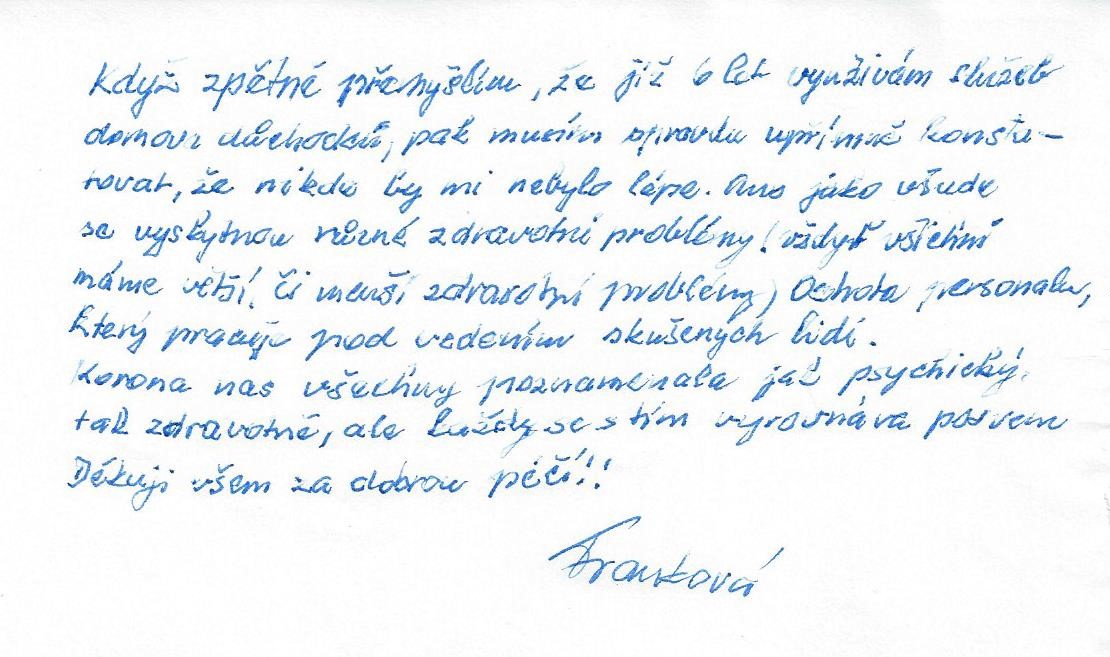 Když zpětně přemýšlím, že již 6 let využívám služeb
domova důchodků, pak musím opravdu upřímně konsta-
tovat, že nikde by mi nebylo lépe. Ano jako všude
se vyskytnou různé zdravotní problémy (vždyť všichni
máme větší či menší zdravotní problémy) Ochota personalu,
který pracuje pod vedením skušených lidí.
Korona nas všechny poznamenala jak psychický,
tak zdravotně, ale každý se s tím vyrovnáva po svem
Děkuji všem za dobrou péčí!!